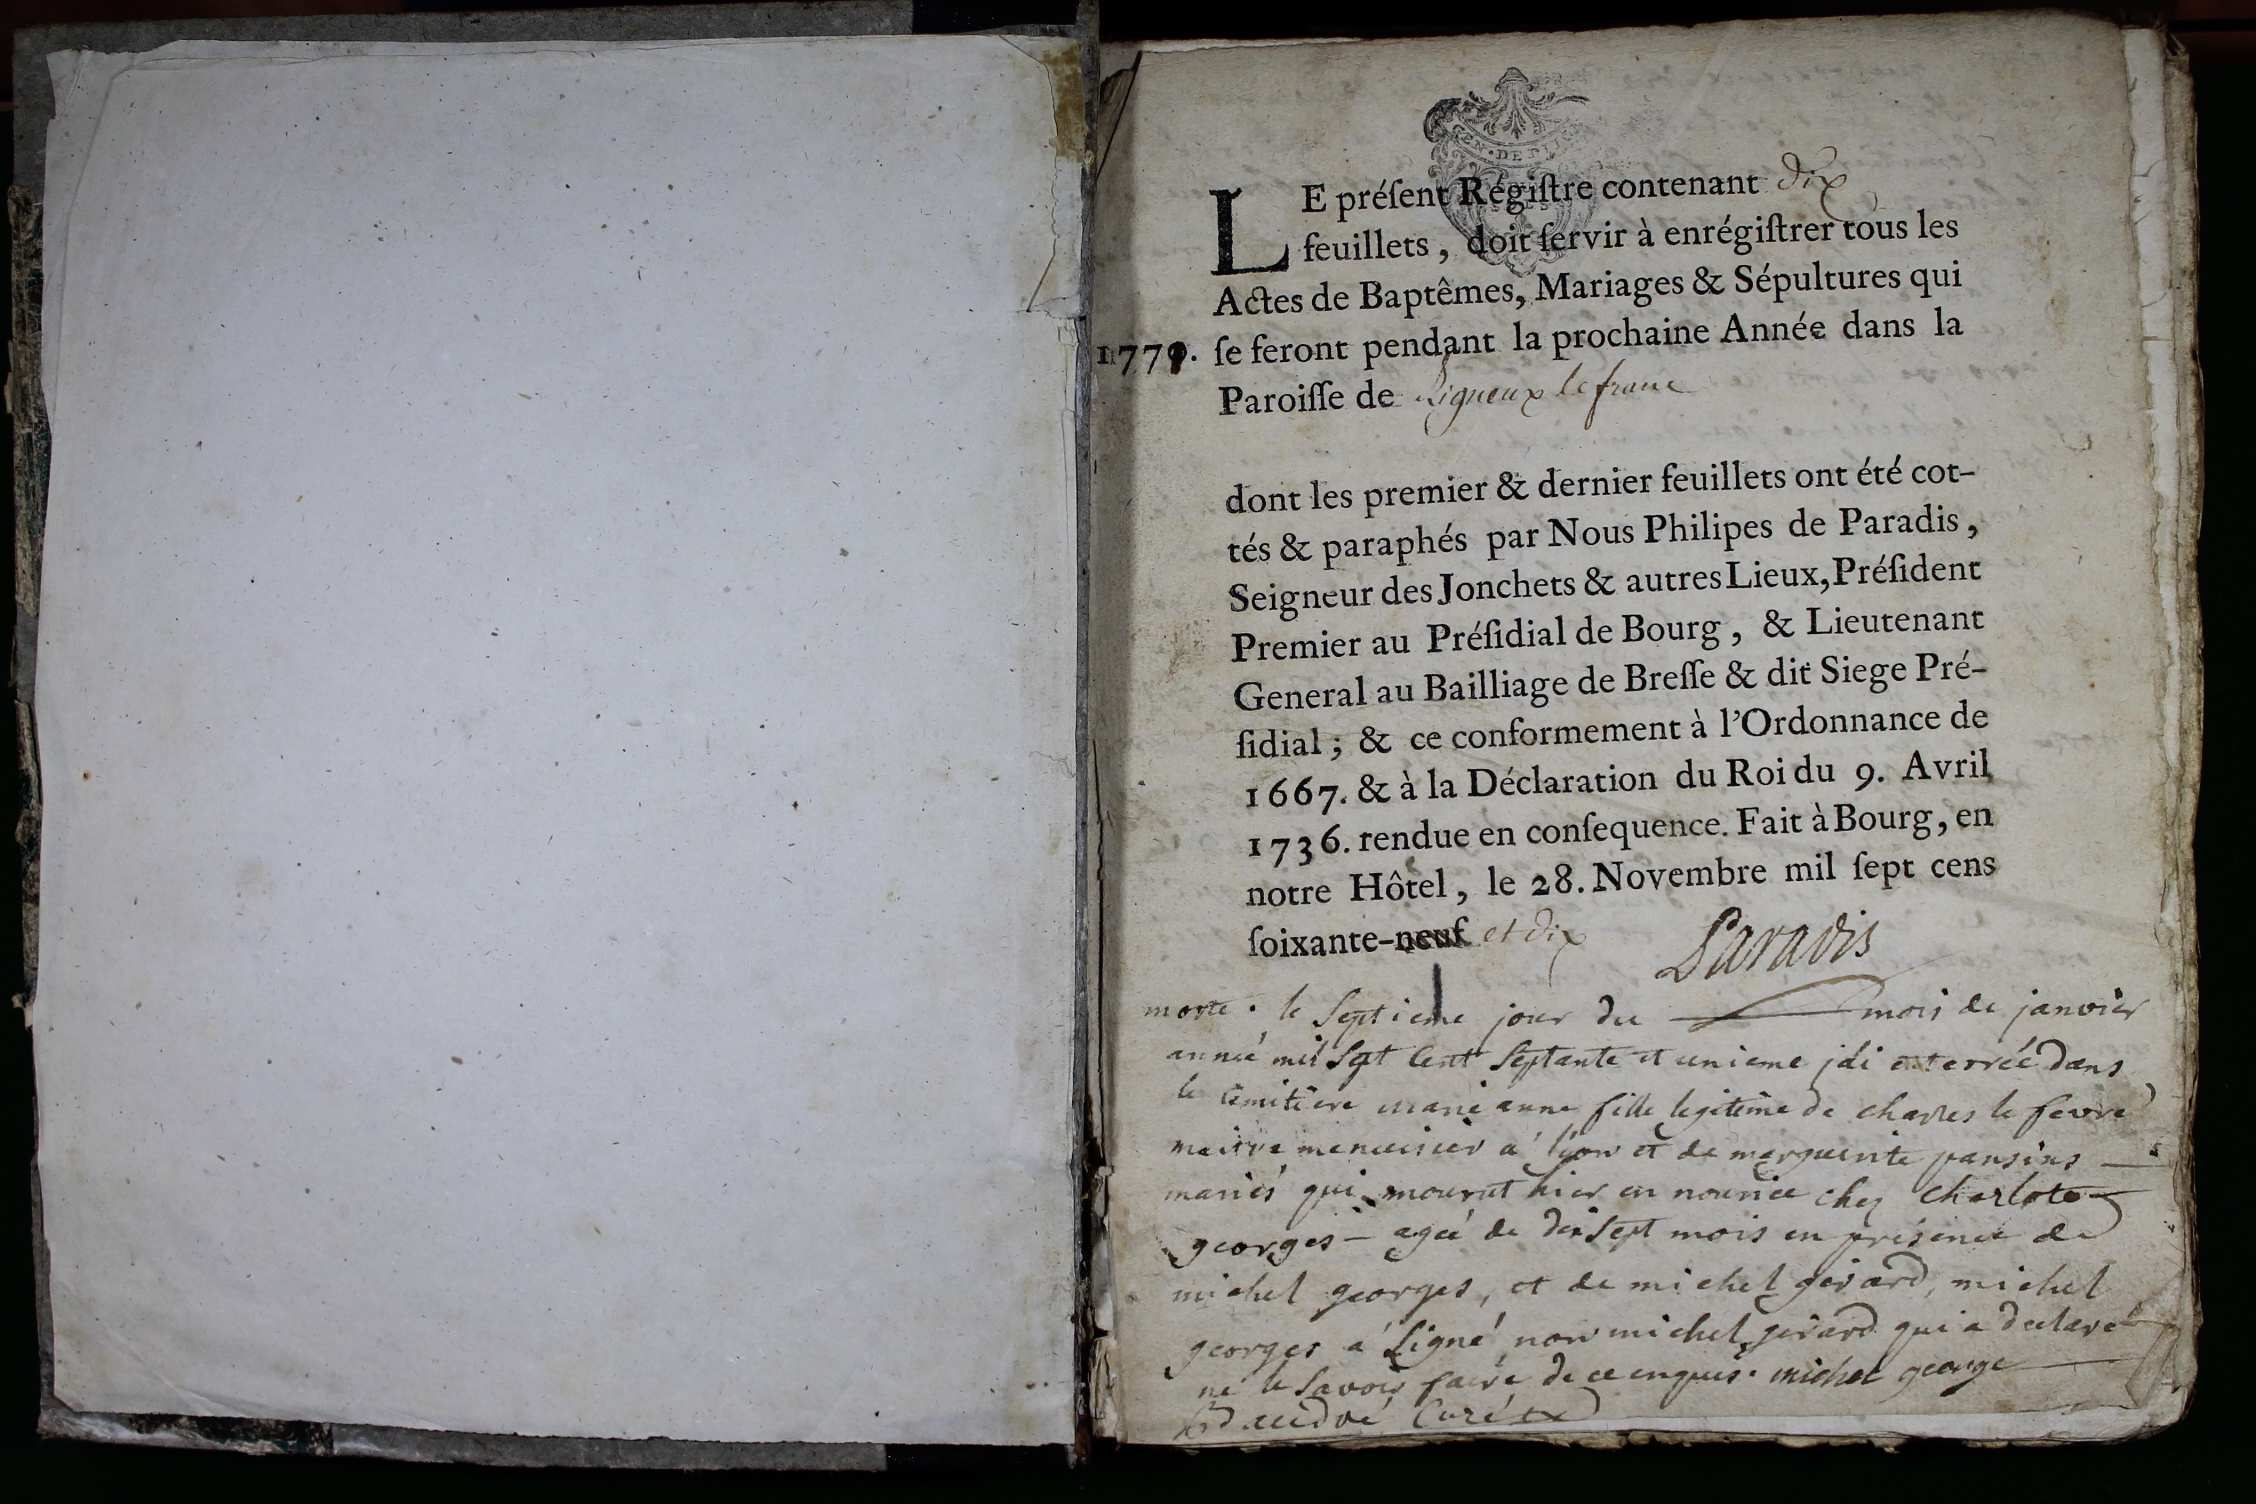 GEN · DE DI
LE préſent Régiſtre contenant dix
feuillets, doit ſervir à enrégiſtrer tous les
Actes de Baptêmes, Mariages & Sépultures qui
1771. ſe feront pendant la prochaine Année dans la
Paroiſſe de Ligneux le franc
dont les premier & dernier feuillets ont été cot-
tés & paraphés par Nous Philipes de Paradis,
Seigneur des Jonchets & autres Lieux, Préſident
Premier au Préſidial de Bourg, & Lieutenant
General au Bailliage de Breſſe & dit Siege Pré-
ſidial ; & ce conformement à l'Ordonnance de
1667. & à la Déclaration du Roi du 9. Avril
1736. rendue en conſequence. Fait à Bourg, en
notre Hôtel, le 28. Novembre mil ſept cens
ſoixante-neuf et dix Paradis
morte. le septieme jour du mois de janvier
année mil sept cent septante et unieme j'ai enterrée dans
le cimitiere marie anne fille legitime de charles le fevre
maitre menuisier a lyon et de marguerite pansins
mariés qui mourut hier en nourice chez charlote
georges - agée de dix sept mois en présence de
michel georges, et de michel gerard, michel
georges a signé non michel gerard qui a declaré
ne le savoir faire de ce enquis. michel george
curé